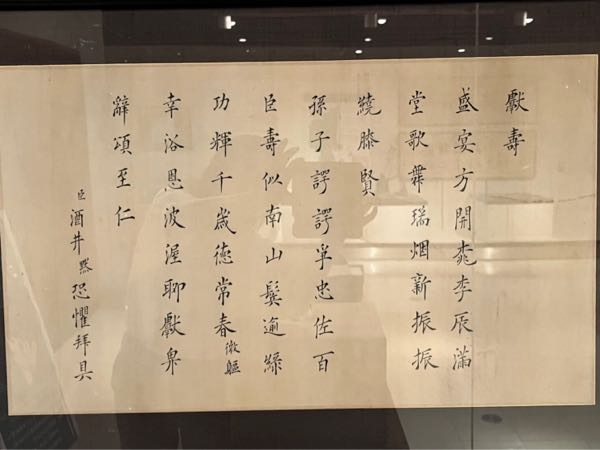 獻壽
盛宴方開桃李辰滿
堂歌舞瑞烟新振振
繞膝賢
孫子諤諤宰忠佐百
臣壽似南山鬢逾綠
功輝千歲德常春微軀
幸浴恩波渥聊獻鳧
辭頌至仁
臣酒井㷱恐懼拜具